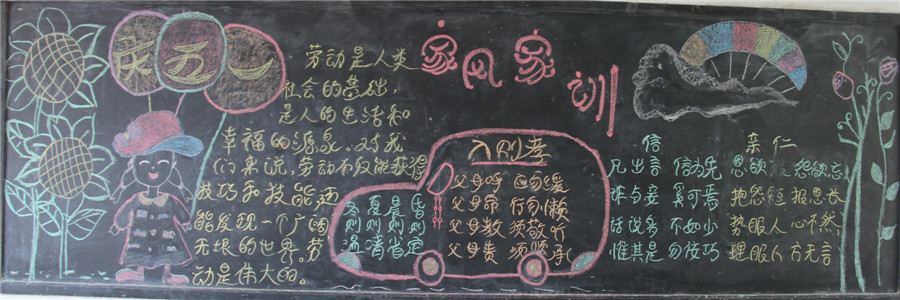 庆五一
家风家训
劳动是人类
社会的基础,
是人的生活和
幸福的源泉。对我
们来说,劳动不仅能获得
技巧和技能还
能发现一个广阔
无垠的世界。劳
动是伟大的。
入则孝
父母呼 应勿缓
父母命 行勿懒
父母教 须敬听
父母责 须顺承
冬则温
夏则凊
晨则省
昏则定
信
凡出言 信为先
诈与妄 奚可焉
话说多 不如少
惟其是 勿佞巧
亲仁
恩欲报 怨欲忘
抱怨短 报恩长
势服人 心不然
理服人 方无言